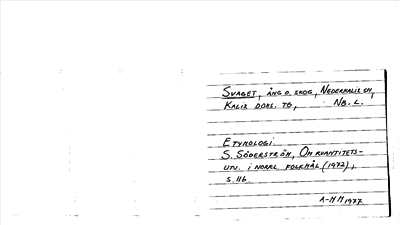 SVAGET, ÄNG O. SKOG, NEDERKALIX SN,
KALIX DOMS. TG, NB. L.
ETYMOLOGI
S. SÖDERSTRÖM, OM KVANTITETS-
UTV. I NORRL FOLKMÅL (1972),
S. 116.
A-M M 1977